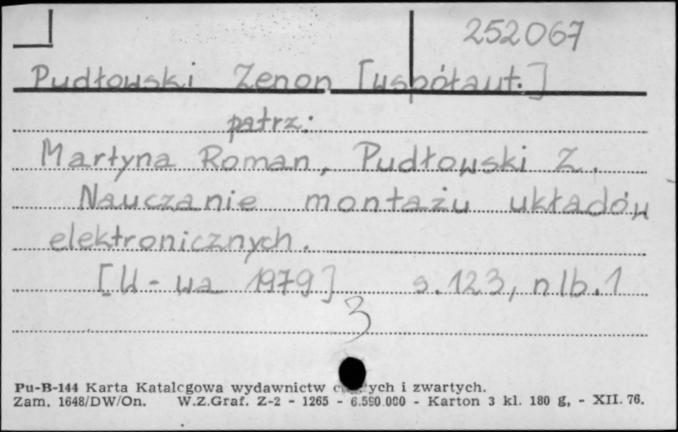 252067
Pudłowski Zenon [współaut.]
patrz:
Martyna Roman, Pudłowski Z.
Nauczanie montażu układów
elektronicznych.
[W-wa 1979] s.123, nlb.1
3
Pu-B-144 Karta Katalogowa wydawnictw i zwartych.
Zam. 1648/DW/On. W.Z.Graf. Z-2 - 1265 - 6.590.000 - Karton 3 kl. 180 g, - XII. 76.